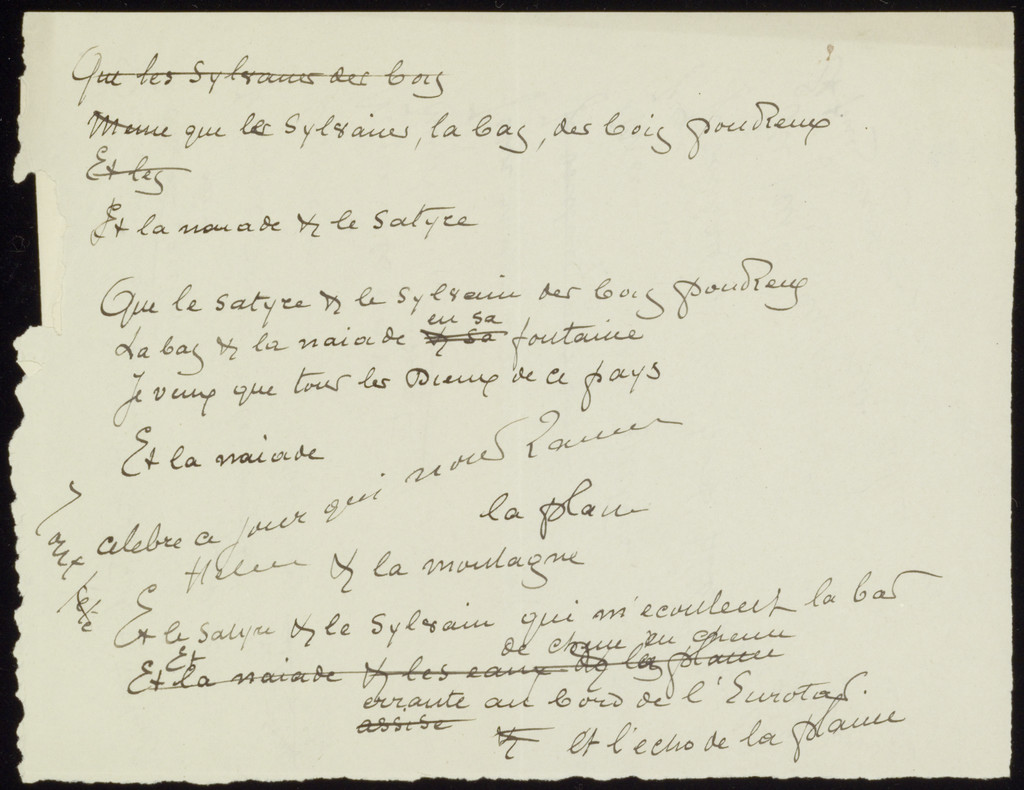 Que les Sylvains des bois
Meme que les Sylvains, la bas, des bois poudreux
Et les
Et la naiade & le Satyre
Que le satyre & le Sylvain des bois poudreux
en sa
La bas & la naiade & sa fontaine
Je veux que tous les Dieux de ce pays
Et la naiade
celebre ce jour qui nous
la plaine
Helene & la montagne
Et le Satyre & le Sylvain qui m'ecoutent la bas
de chene en chene
Et
Et la naiade & les eaux de la plaine
errante au bord de l'Eurotas.
assise
& et l'echo de la plaine